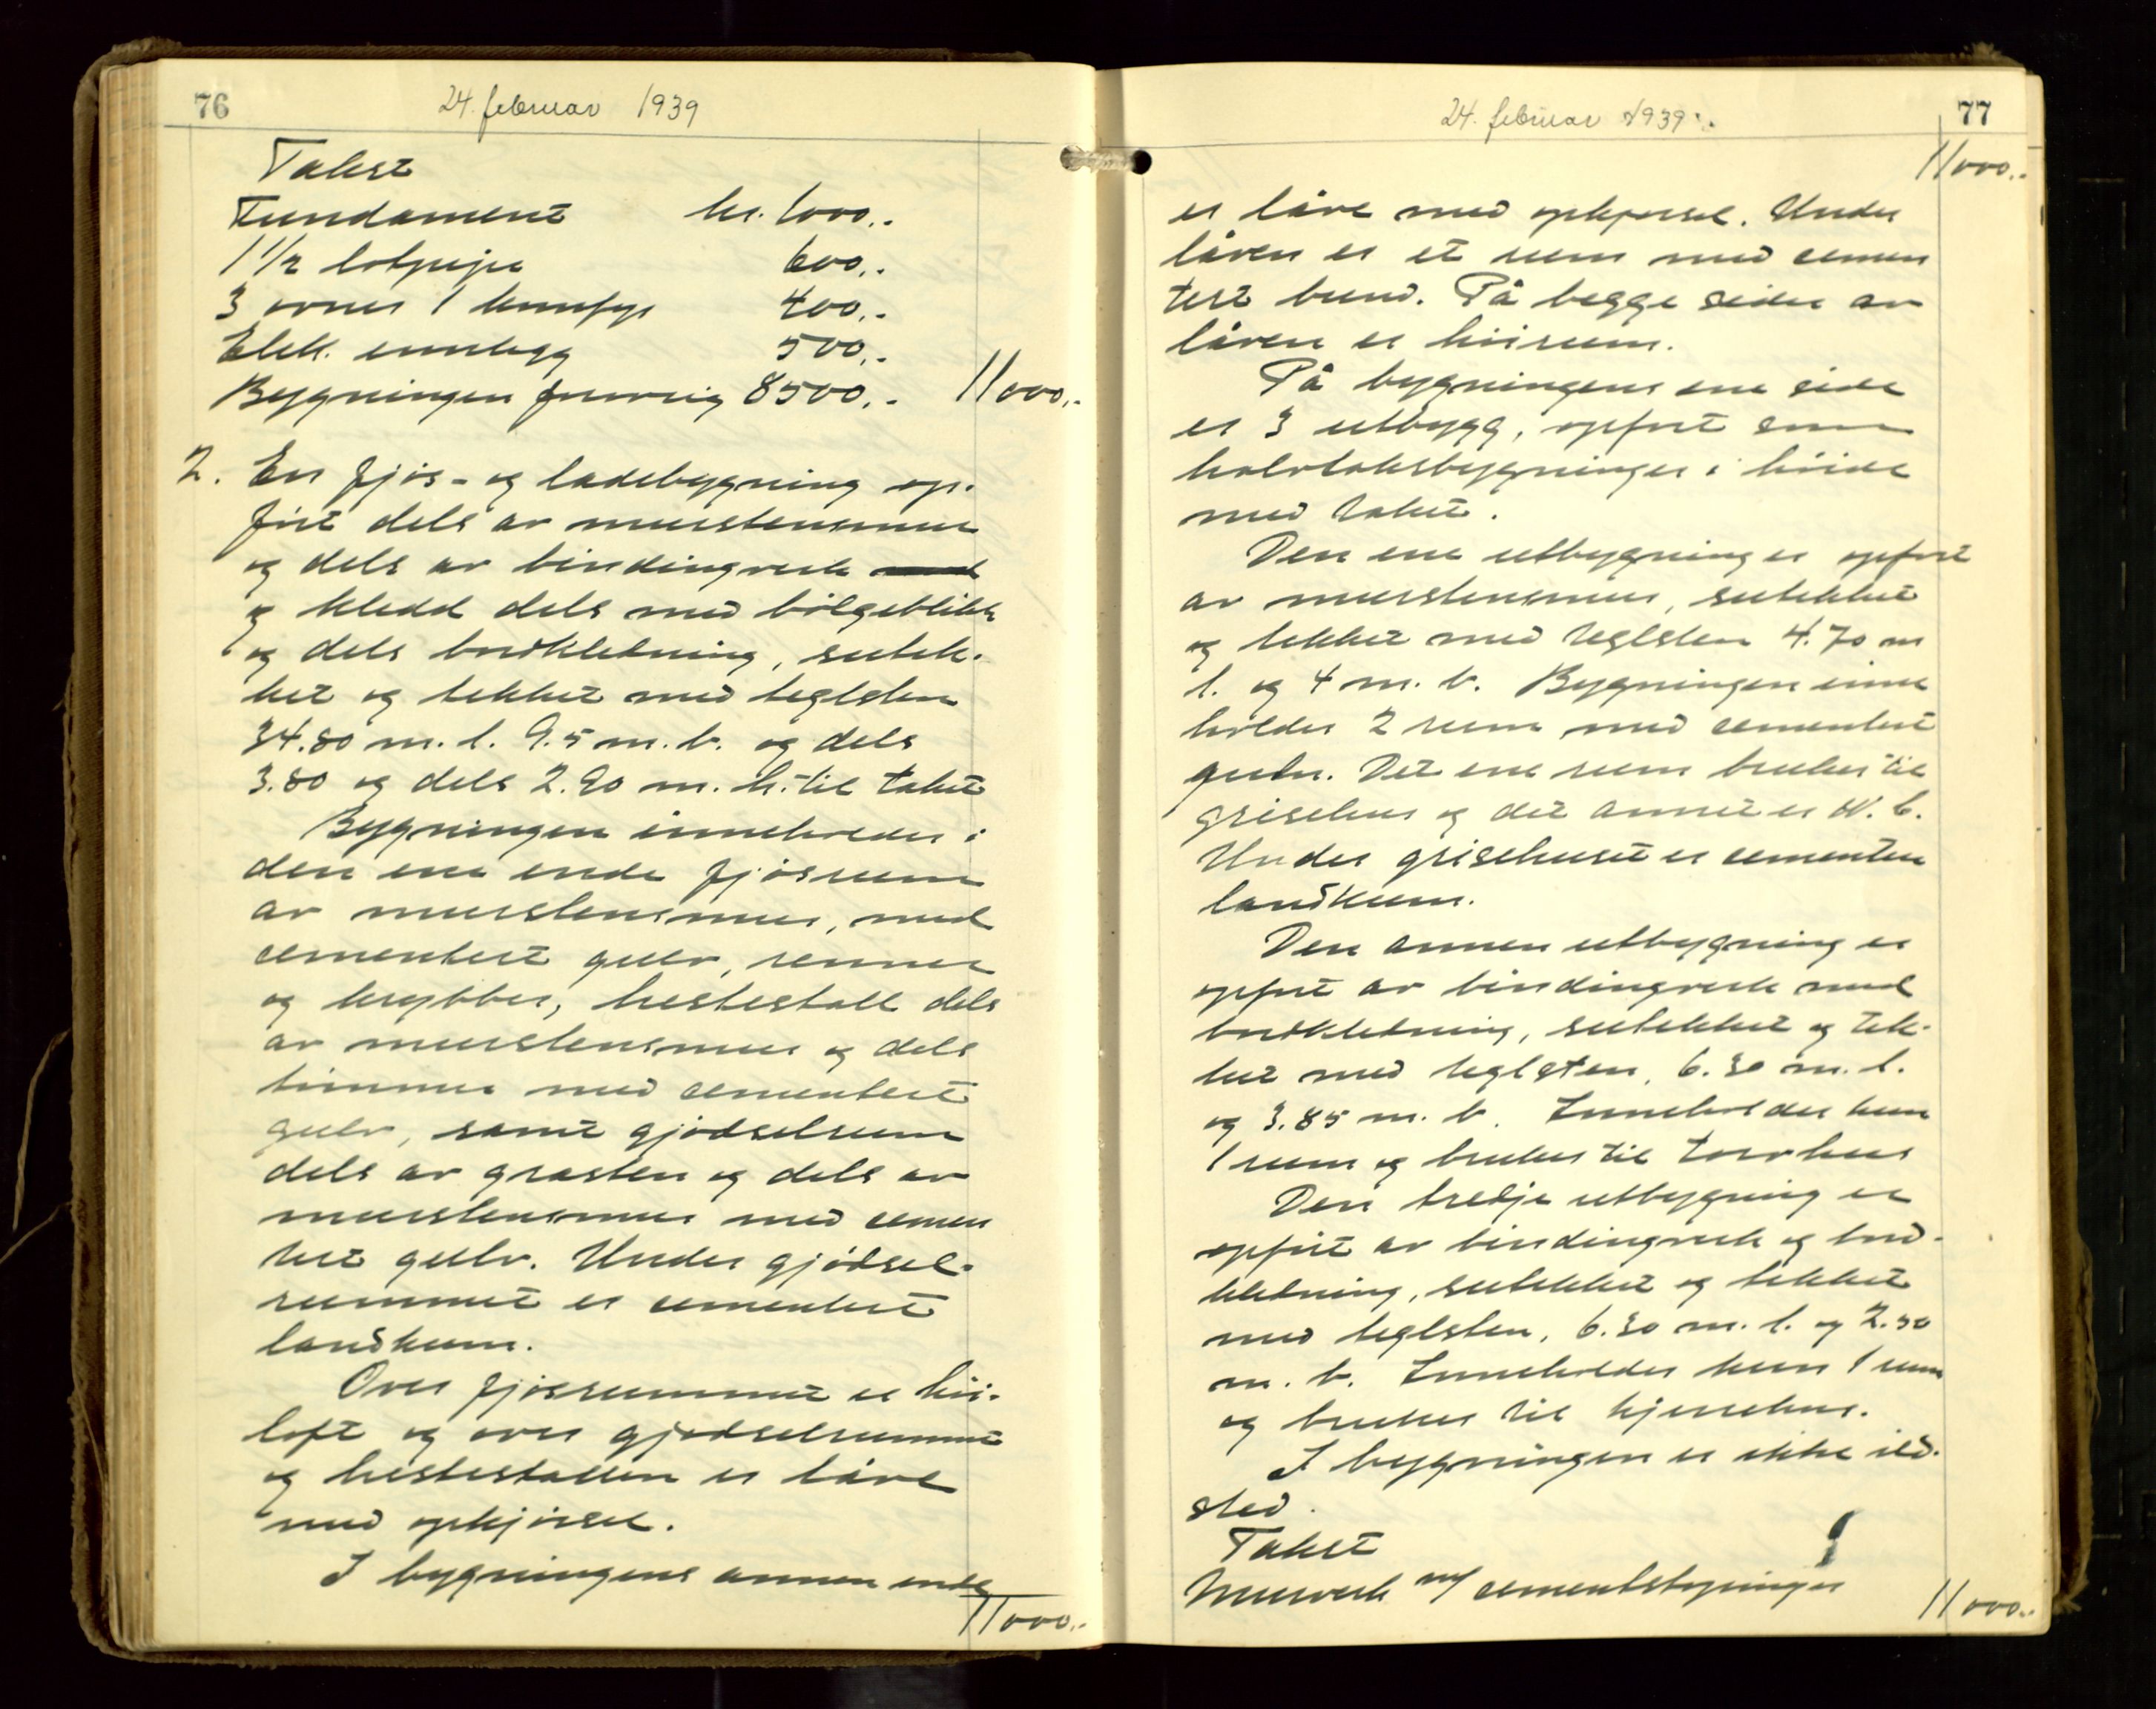 76
24. februar 1939
Takst
Fundament kr. 1000,-
1 1/2 løbpipe 600,-
3 ovner 1 komfyr 400,-
Elek. innlegg 500,-
Bygningen forøvrig 8500,- 11000,-
2. En fjøs- og ladebygning op-
ført dels av murstensmur
og dels av bindingverk
og kledd dels med bølgeblikk
og dels bordkledning, sutek-
ket og tekket med teglsten
34.80 m. l. 9.5 m. b. og dels
3.80 og dels 2.90 m. h. til taket
Bygningen inneholder i
den ene ende fjøsrum
av murstensmur, med
cementert gulv, renner
og krybber, hestestall dels
av murstensmur og dels
tømmer med cementert
gulv, samt gjødselrum
dels av gråsten og dels av
murstensmur med cemen
tert gulv. Under gjødsel-
rummet er cementert
landkum.
Over fjøsrummet er høi-
loft og over gjødselrummet
og hestestallen er låve
med opkjørsel.
I bygningens annen ende
11000,-
77
24. februar 1939
11000,-
er låve med opkjørsel. Under
låven er et rum med cemen
tert bund. På begge sider av
låven er høirum.
På bygningens ene side
er 3 utbygg, opført som
halvtaksbygninger i høide
med taket.
Den ene utbygning er opført
av murstensmur, sutekket
og tekket med teglsten 4.70 m
l. og 4 m. b. Bygningen inne
holder 2 rum med cementert
gulv. Det ene rum brukes til
grisehus og det annet er W. C.
Under grisehuset er cementen
landkum.
Den annen utbygning er
opført av bindingverk med
bordkledning, sutekket og tek-
ket med teglsten, 6.30 m. l.
og 3.85 m. b. Inneholder kun
1 rum og brukes til torvhus
Den tredje utbygning er
opført av bindingverk og bord-
kledning, sutekket og tekket
med teglsten, 6.30 m. l. og 2.50
m. b. Inneholder kun 1 rum
og brukes til kjerrehus.
I bygningen er ikke ild-
sted.
Takst
Murverk m/ cementstøpninger
11000,-